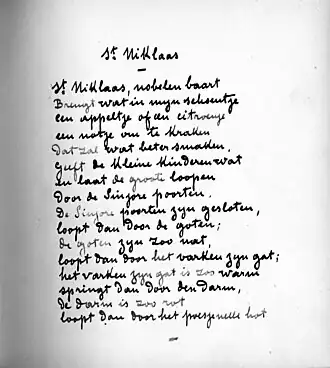 St Niklaas
St Niklaas, nobelen baart
Brengt wat in mijn schoentje
een appeltje of een citroentje
een notje om te kraken
Dat zal wat beter smaken.
Geeft de kleine kinderen wat
en laat de groote loopen
Door de Sinjore poorten.
De Sinjore poorten zijn gesloten,
loopt dan door de goten;
de goten zijn zoo nat,
loopt dan door het varken zijn gat;
het varken zijn gat is zoo warm
springt dan door den darm,
de darm is zoo rot
loopt dan door het poesjenelle kot